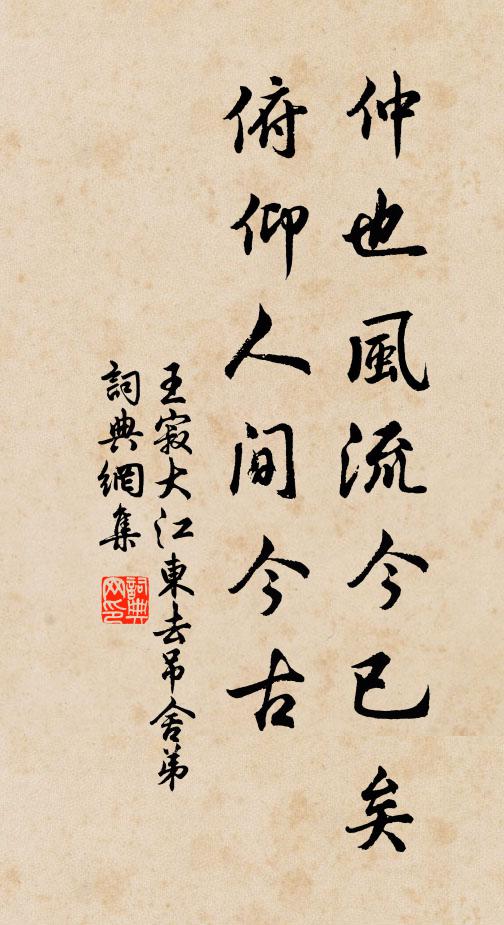 仲也風流今已矣
俯仰人间今古
王寂大江東去吊舍弟
詞典網集
詞典網印